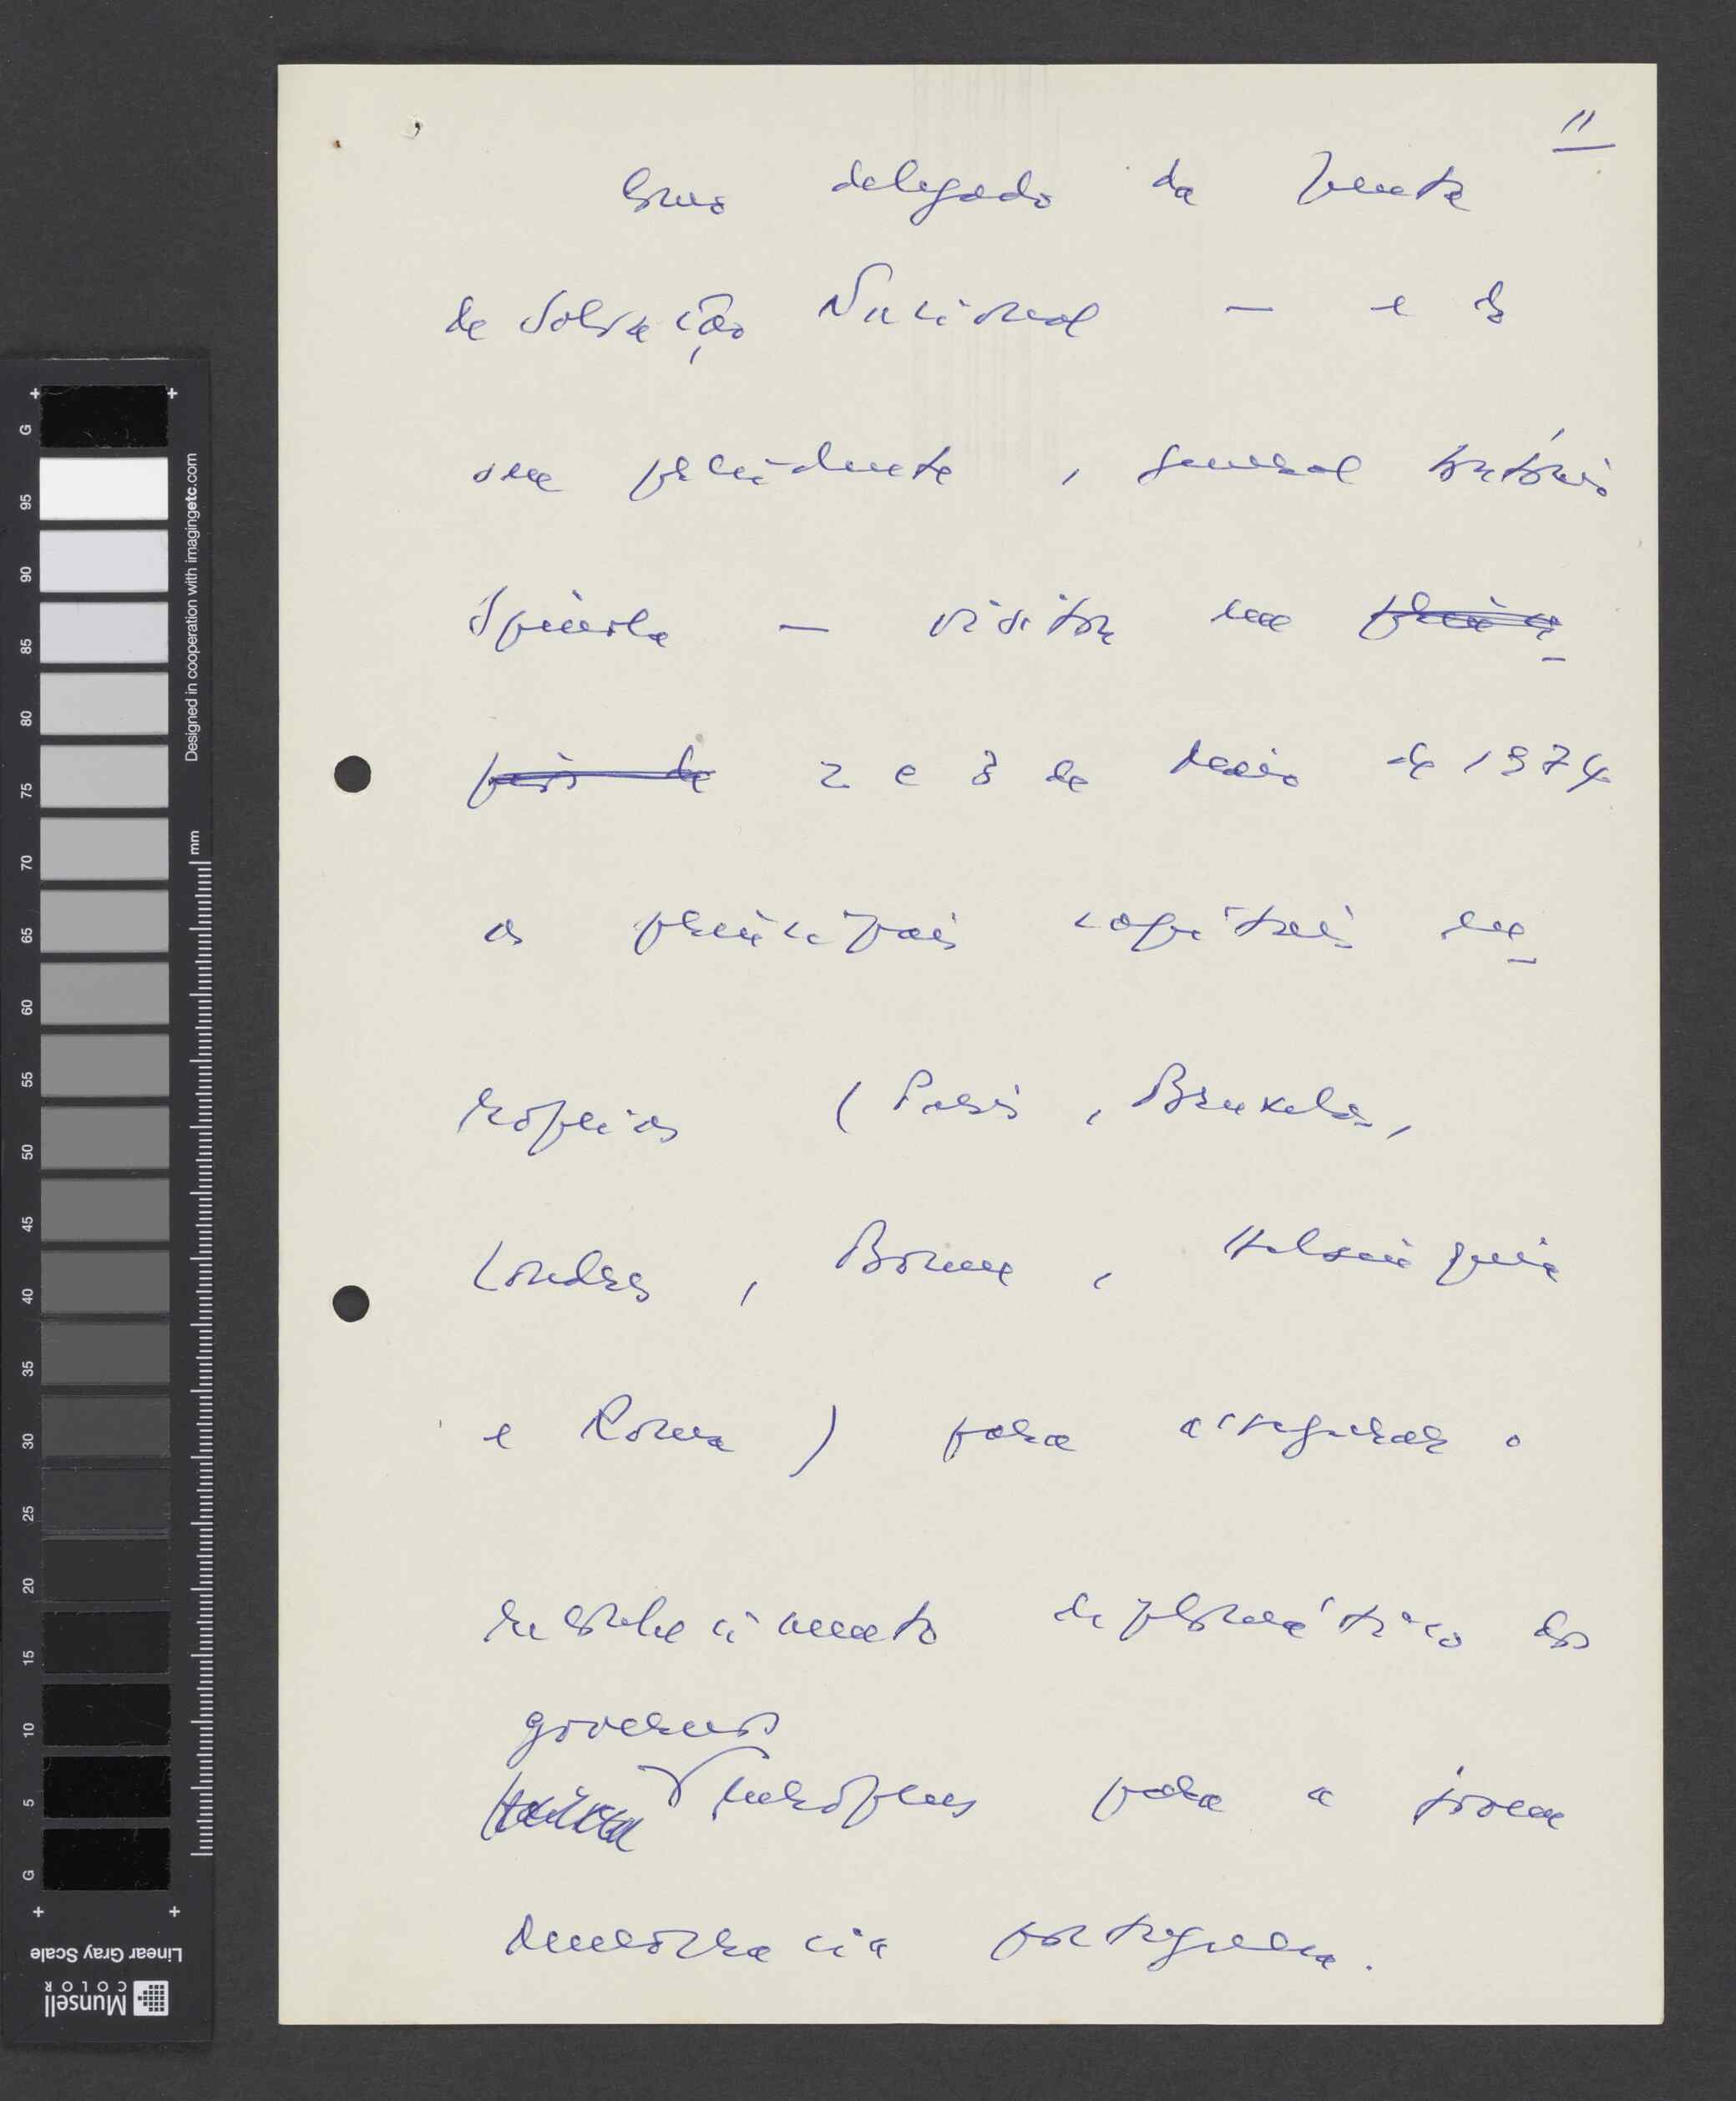 11
Como delegado da Junta
de Salvação Nacional — e do
seu presidente, general António
Spínola — visitou em princí-
pios de 2 e 3 de Maio de 1974
as principais capitais eu-
ropeias (Paris, Bruxelas,
Londres, Bonn, Helsínquia
e Roma) para assegurar o
reconhecimento diplomático dos
governos
europeus para a jovem
democracia portuguesa.
G
95
90
85
80
75
70
65
60
55
50
45
40
35
30
25
20
15
10
5
G
Designed in cooperation with imagingetc.com
mm
Linear Gray Scale
Munsell
COLOR